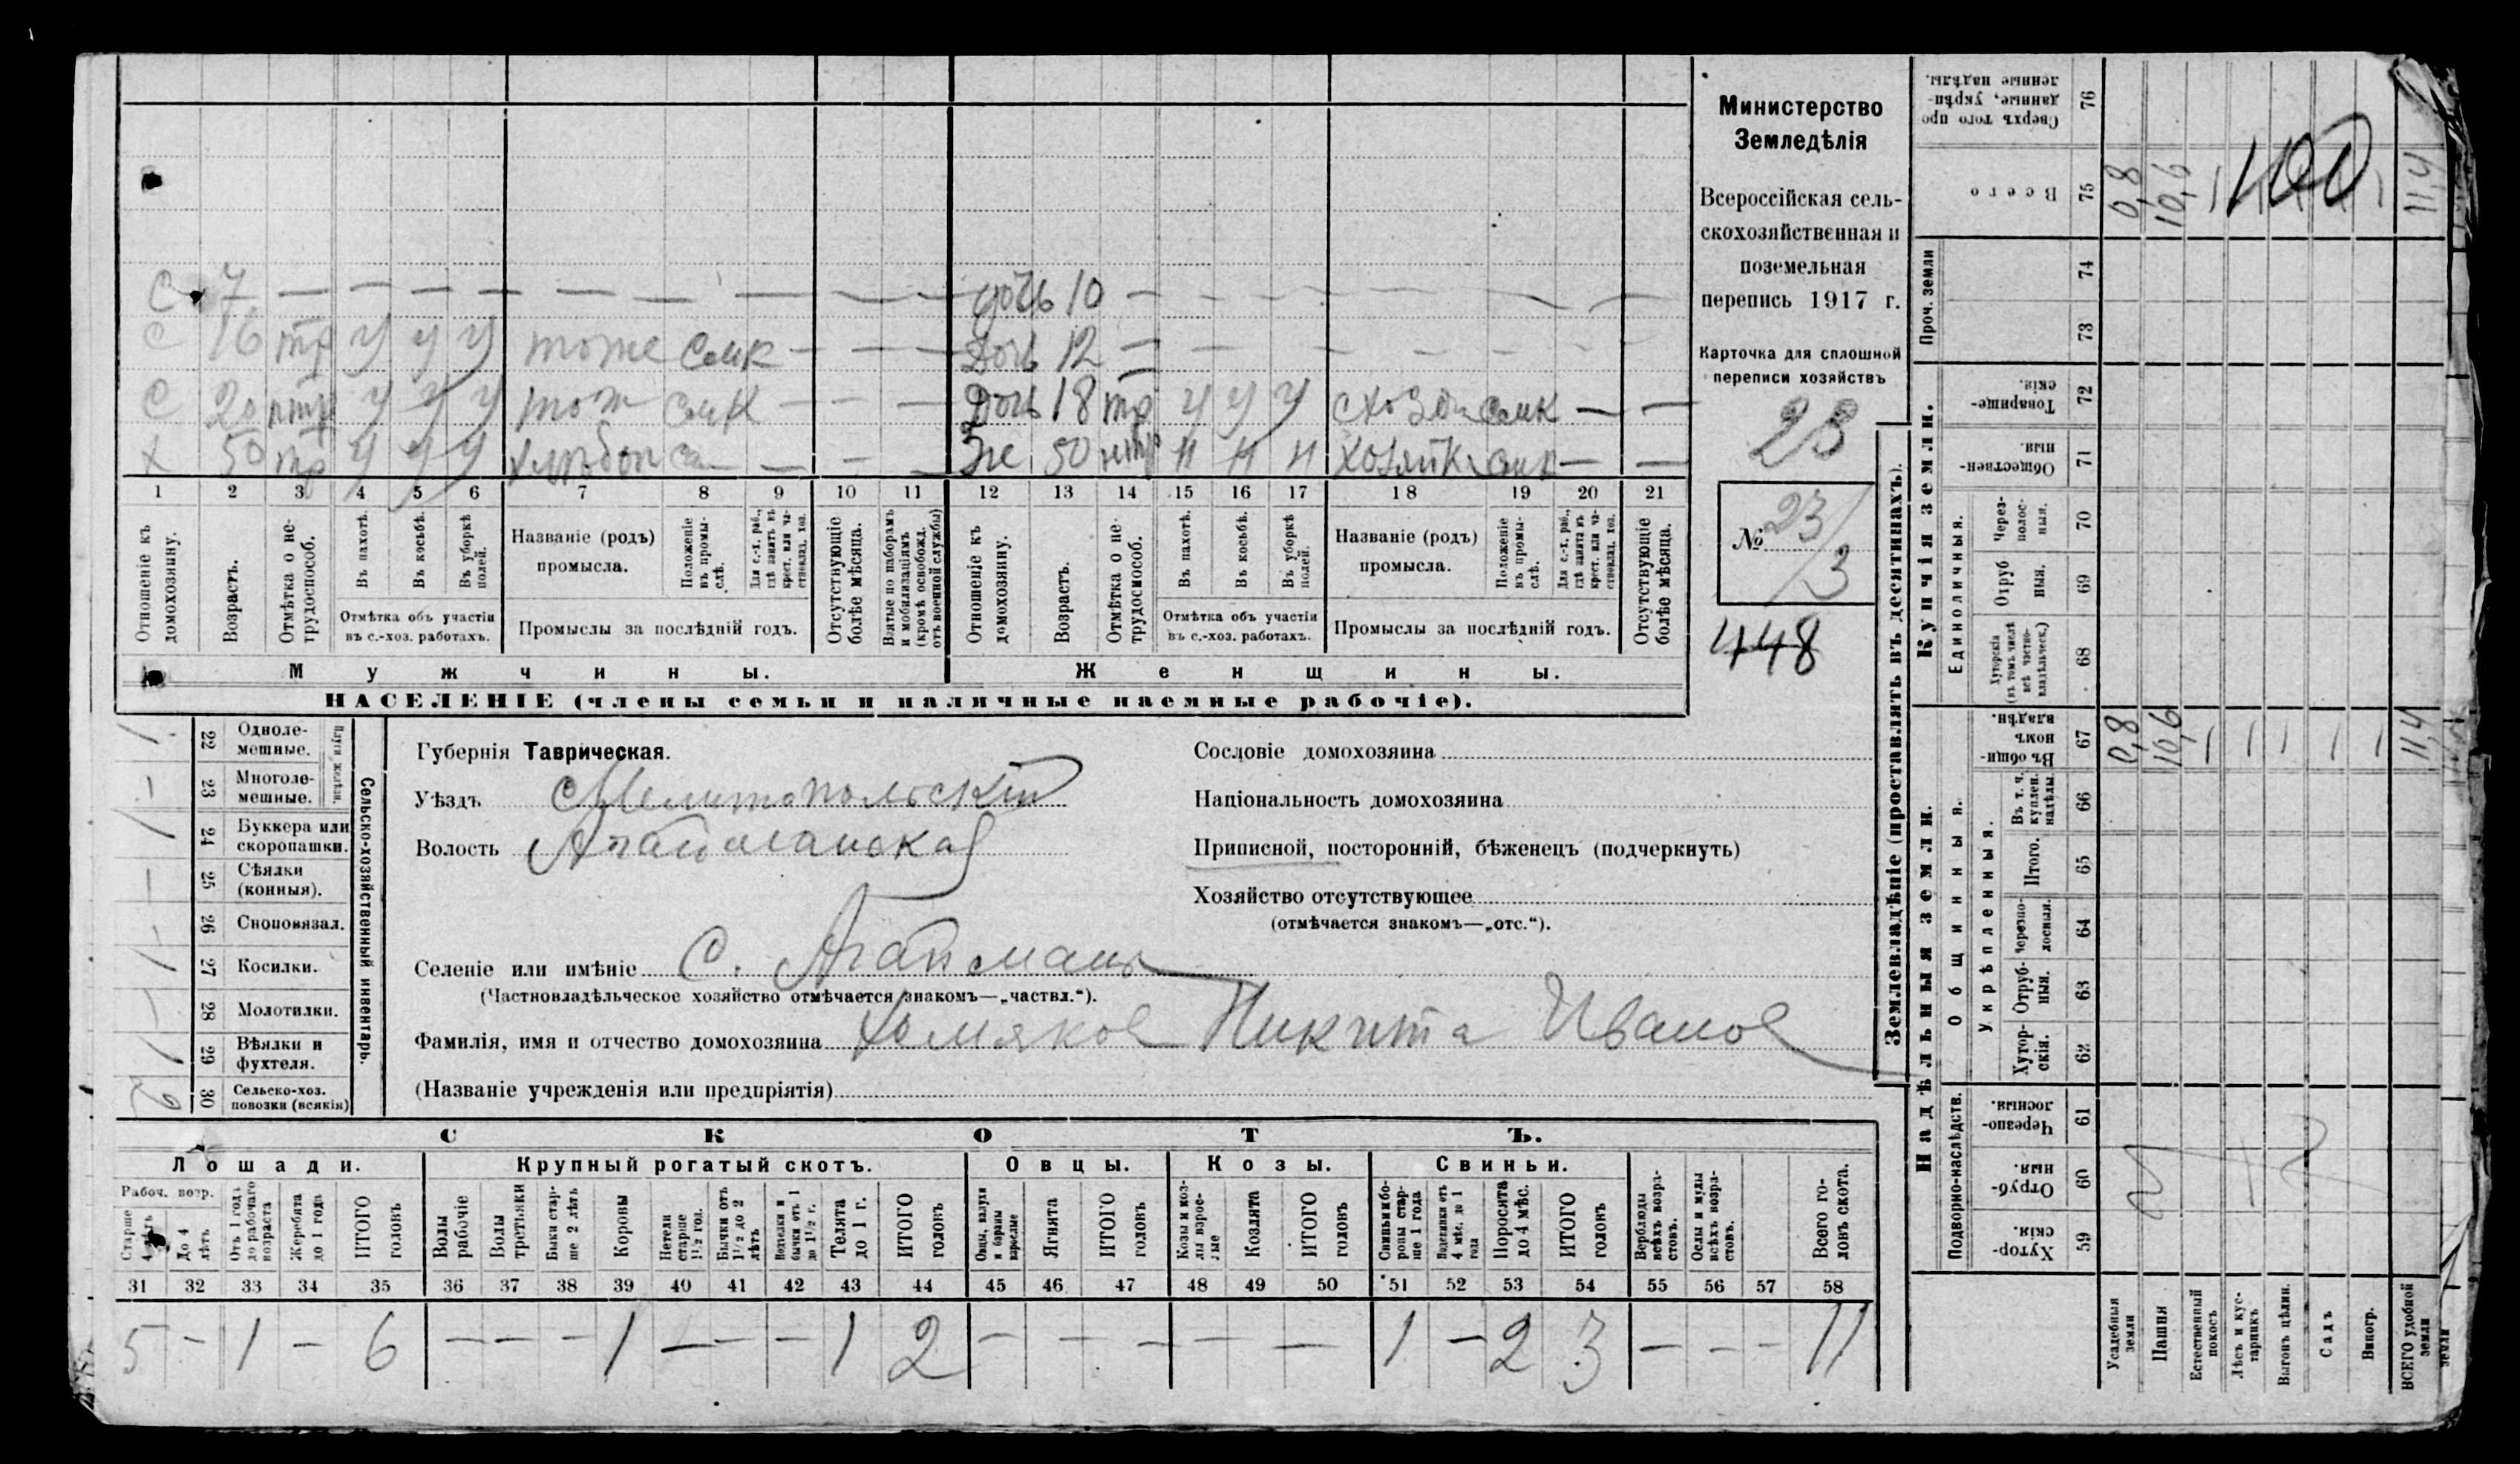 С 7 — — — — — — — — — дочь 10 — — — — — — — —
С 16 тр у у у тоже самк — — — дочь 12 — — — — — — — —
С 20 нтр у у у тож самк — — — дочь 18 тр у у у самк — —
Х 50 тр у у у — — — Же 50 нтр н н н хозяйка — —
1 2 3 4 5 6 7 8 9 10 11 12 13 14 15 16 17 18 19 20 21
Отношеніе къ домохозяину.
Возрастъ.
Отмѣтка о не-трудоспособ.
Въ пахотѣ.
Въ косьбѣ.
Въ уборкѣ полей.
Отмѣтка объ участіи въ с.-хоз. работахъ.
Названіе (родъ) промысла.
Положеніе въ промы-слѣ.
Для с.-х. раб., гдѣ занятъ въ крест. или ча-стновлад. хоз.
Промыслы за послѣдній годъ.
Отсутствующіе болѣе мѣсяца.
Взятые по наборамъ и мобилизаціямъ (кромѣ освобожд. отъ военной службы)
Отношеніе къ домохозяину.
Возрастъ.
Отмѣтка о не-трудоспособ.
Въ пахотѣ.
Въ косьбѣ.
Въ уборкѣ полей.
Отмѣтка объ участіи въ с.-хоз. работахъ.
Названіе (родъ) промысла.
Положеніе въ промы-слѣ.
Для с.-х. раб., гдѣ занята въ крест. или ча-стновлад. хоз.
Промыслы за послѣдній годъ.
Отсутствующіе болѣе мѣсяца.
Мужчины.
Женщины.
НАСЕЛЕНІЕ (члены семьи и наличные наемные рабочіе).
Министерство
Земледѣлія
Всероссійская сель-
скохозяйственная и
поземельная
перепись 1917 г.
Карточка для сплошной
переписи хозяйствъ
23
№ 23/3
448
Сельско-хозяйственный инвентарь.
Плуги желѣзн.
22 Одноле-мешные. 1
23 Многоле-мешные. —
24 Буккера или скоропашки. 1
25 Сѣялки (конныя). —
26 Сноповязал. —
27 Косилки. 1
28 Молотилки. —
29 Вѣялки и фухтеля. 1
30 Сельско-хоз. повозки (всякія)
Губернія Таврическая.
Уѣздъ Мелитопольскій
Волость Агайманская
Селеніе или имѣніе С. Агайманъ
(Частновладѣльческое хозяйство отмѣчается знакомъ—„частвл.“).
Фамилія, имя и отчество домохозяина Хомяков Никита Иванов
(Названіе учрежденія или предпріятія)
Сословіе домохозяина
Національность домохозяина
Приписной, посторонній, бѣженецъ (подчеркнуть)
Хозяйство отсутствующее
(отмѣчается знакомъ—„отс.“).
СКОТЪ.
Лошади. Крупный рогатый скотъ. Овцы. Козы. Свиньи.
Рабоч. возр.
Старше 4 лѣтъ
До 4 лѣтъ
Отъ 1 года до рабочаго возраста
Жеребята до 1 года
ИТОГО головъ
Волы рабочіе
Волы третьяки
Быки стар-ше 2 лѣтъ
Коровы
Нетели старше 1½ год.
Бычки отъ 1½ до 2 лѣтъ
Подтелки и бычки отъ 1 до 1½ г.
Телята до 1 г.
ИТОГО головъ
Овцы, валухи и бараны взрослые
Ягнята
ИТОГО головъ
Козы и коз-лы взрос-лые
Козлята
ИТОГО головъ
Свиньи и бо-ровы стар-ше 1 года
Подсвинки отъ 4 мѣс. до 1 года
Поросята до 4 мѣс.
ИТОГО головъ
Верблюды всѣхъ возра-стовъ.
Ослы и мулы всѣхъ возра-стовъ.
Всего го-ловъ скота.
31 32 33 34 35 36 37 38 39 40 41 42 43 44 45 46 47 48 49 50 51 52 53 54 55 56 57 58
5 — 1 — 6 — — — 1 — — — 1 2 — — — — — — 1 — 2 3 — — — 11
Землевладѣніе (проставлять въ десятинахъ).
Надѣльныя земли.
Купчія земли.
Проч. земли
Подворно-наслѣдств.
Общинныя.
Укрѣпленныя.
Единоличныя.
Хутор-скія. 59
Отруб-ныя. 60
Черезпо-лосныя. 61
Хутор-скія. 62
Отруб-ныя. 63
Черезпо-лосныя. 64
Итого. 65
Въ т. ч. куплен. надѣлы. 66
Въ общин-номъ владѣн. 67
Хуторскія (въ томъ числѣ всѣ частно-владѣльческ.) 68
Отруб ныя. 69
Через-полос-ныя. 70
Обществен-ныя. 71
Товарище-скія. 72
73
74
Всего 75
Сверхъ того про данные, укрѣп-ленные надѣлы. 76
0,8 10,6 — — — — — 11,4
0,8 10,6 — — — — — 11,4
100
Усадебныя земли
Пашня
Естественный покосъ
Лѣсъ и кус-тарникъ
Выгонъ цѣлин.
Садъ
Виногр.
ВСЕГО удобной земли